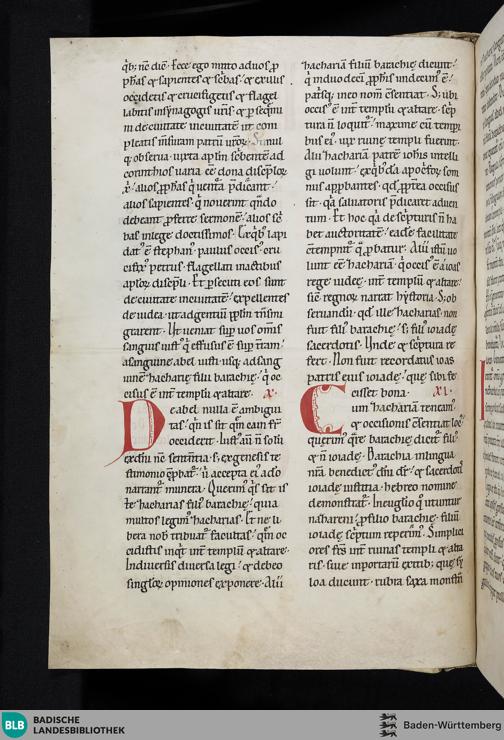 q̇b; nē diē. Ecce ego mitto ad uos p
phās & sapientes & sēbas. & ex illis
occidetis & crucifigetis & flagel
labitis in synagogis urīs. & psequimi
ni de ciuitate in ciuitatē. ut com
pleatis msuram patrū uroꝝ. Simul
q observa. iuxta aplm sēbentē ad
corinthios uaria eē dona discipuloꝝ
alios sapientes. q̇ nouerint qn̄do
debeant pferre sermonē. alios sē
bas in lege doctissimos. Ex q̇b; lapi
dat ē stephan. paulus occis. cru
cifix petrus. flagellati in actibus
aploꝝ discipli. Et psecuti eos sunt
de ciuitate in ciuitatē. expellentes
de iudea. ut ad gentiū pplm tn̄smi
grarent. Ut ueniat sup uos omīs
sanguis iust q̇ effusus ē sup trām.
a sanguine abel iusti. usq; ad sang
uinē hachariē filii barachie. q̇ oc
cisus ē int templū & altare. x.
De abel nulla ē ambigui
tas. qn is sit qm cain fr
occiderit. Iust aū n solū
ex dn̄i nē sententia. s; ex genesis te
stimonio pbat. ubi accepta ei a dō
narrant munera. Querim q̇s sit is
te hacharias filī barachie. quia
multos legim hacharias. Et ne li
bera nob tribuat facultas. qm oc
cidistis inq̇t int templū & altare.
In diuersis diuersa legi. & debeo
singloꝝ opiniones exponere. Alii
hachariā filiū barachie dicunt.
q̇ in duodecī pphis undecim ē.
patrisq; in eo nom ōsentiat. S; ubi
occis ē int templū & altare. scp
tura n loquit. maxime cū temp
bus ei. uix ruine templi fuerint.
Alii hachariā patrē iohis intelli
gi uolunt. ex q̇b;dā apocrifoꝝ som
niis approbantes. qd pptea occisus
sit. quia saluatoris pdicaret aduen
tum. Et hoc qa de scpturis n ha
bet auctoritatē. eadē facilitate
ōtempnit q̇ pbatur. Alii istū uo
lunt eē hachariā. q̇ occis ē a ioas
rege iudeę. int templū & altare.
sic regnoꝝ narrat hystoria. S; ob
seruandū. qd ille hacharias. non
fuit filī barachie. s; filī ioiadę
sacerdotis. Unde & scptura re
fert. Non fuit recordatus ioas
patris eius ioiadę. que sibi fe
cisset bona. xi.
Cum hachariam teneam.
& occisionis ōsentiat loc.
querim q̇re barachie dicit filī.
& n ioiadę. Barachia in lingua
nrā benedict dn̄i dr. & sacerdotī
ioiadę iustitia. hebreo nomine
demonstrat. In euglio q̇ utuntur
naḣareni. p filio barachie. filiū
ioiadę scptum repperim. Simplici
ores frs int ruinas templi & alta
ris. siue in portarū exitib; que sy
loa ducunt. rubra saxa monstn
BLB
BADISCHE
LANDESBIBLIOTHEK
Baden-Württemberg